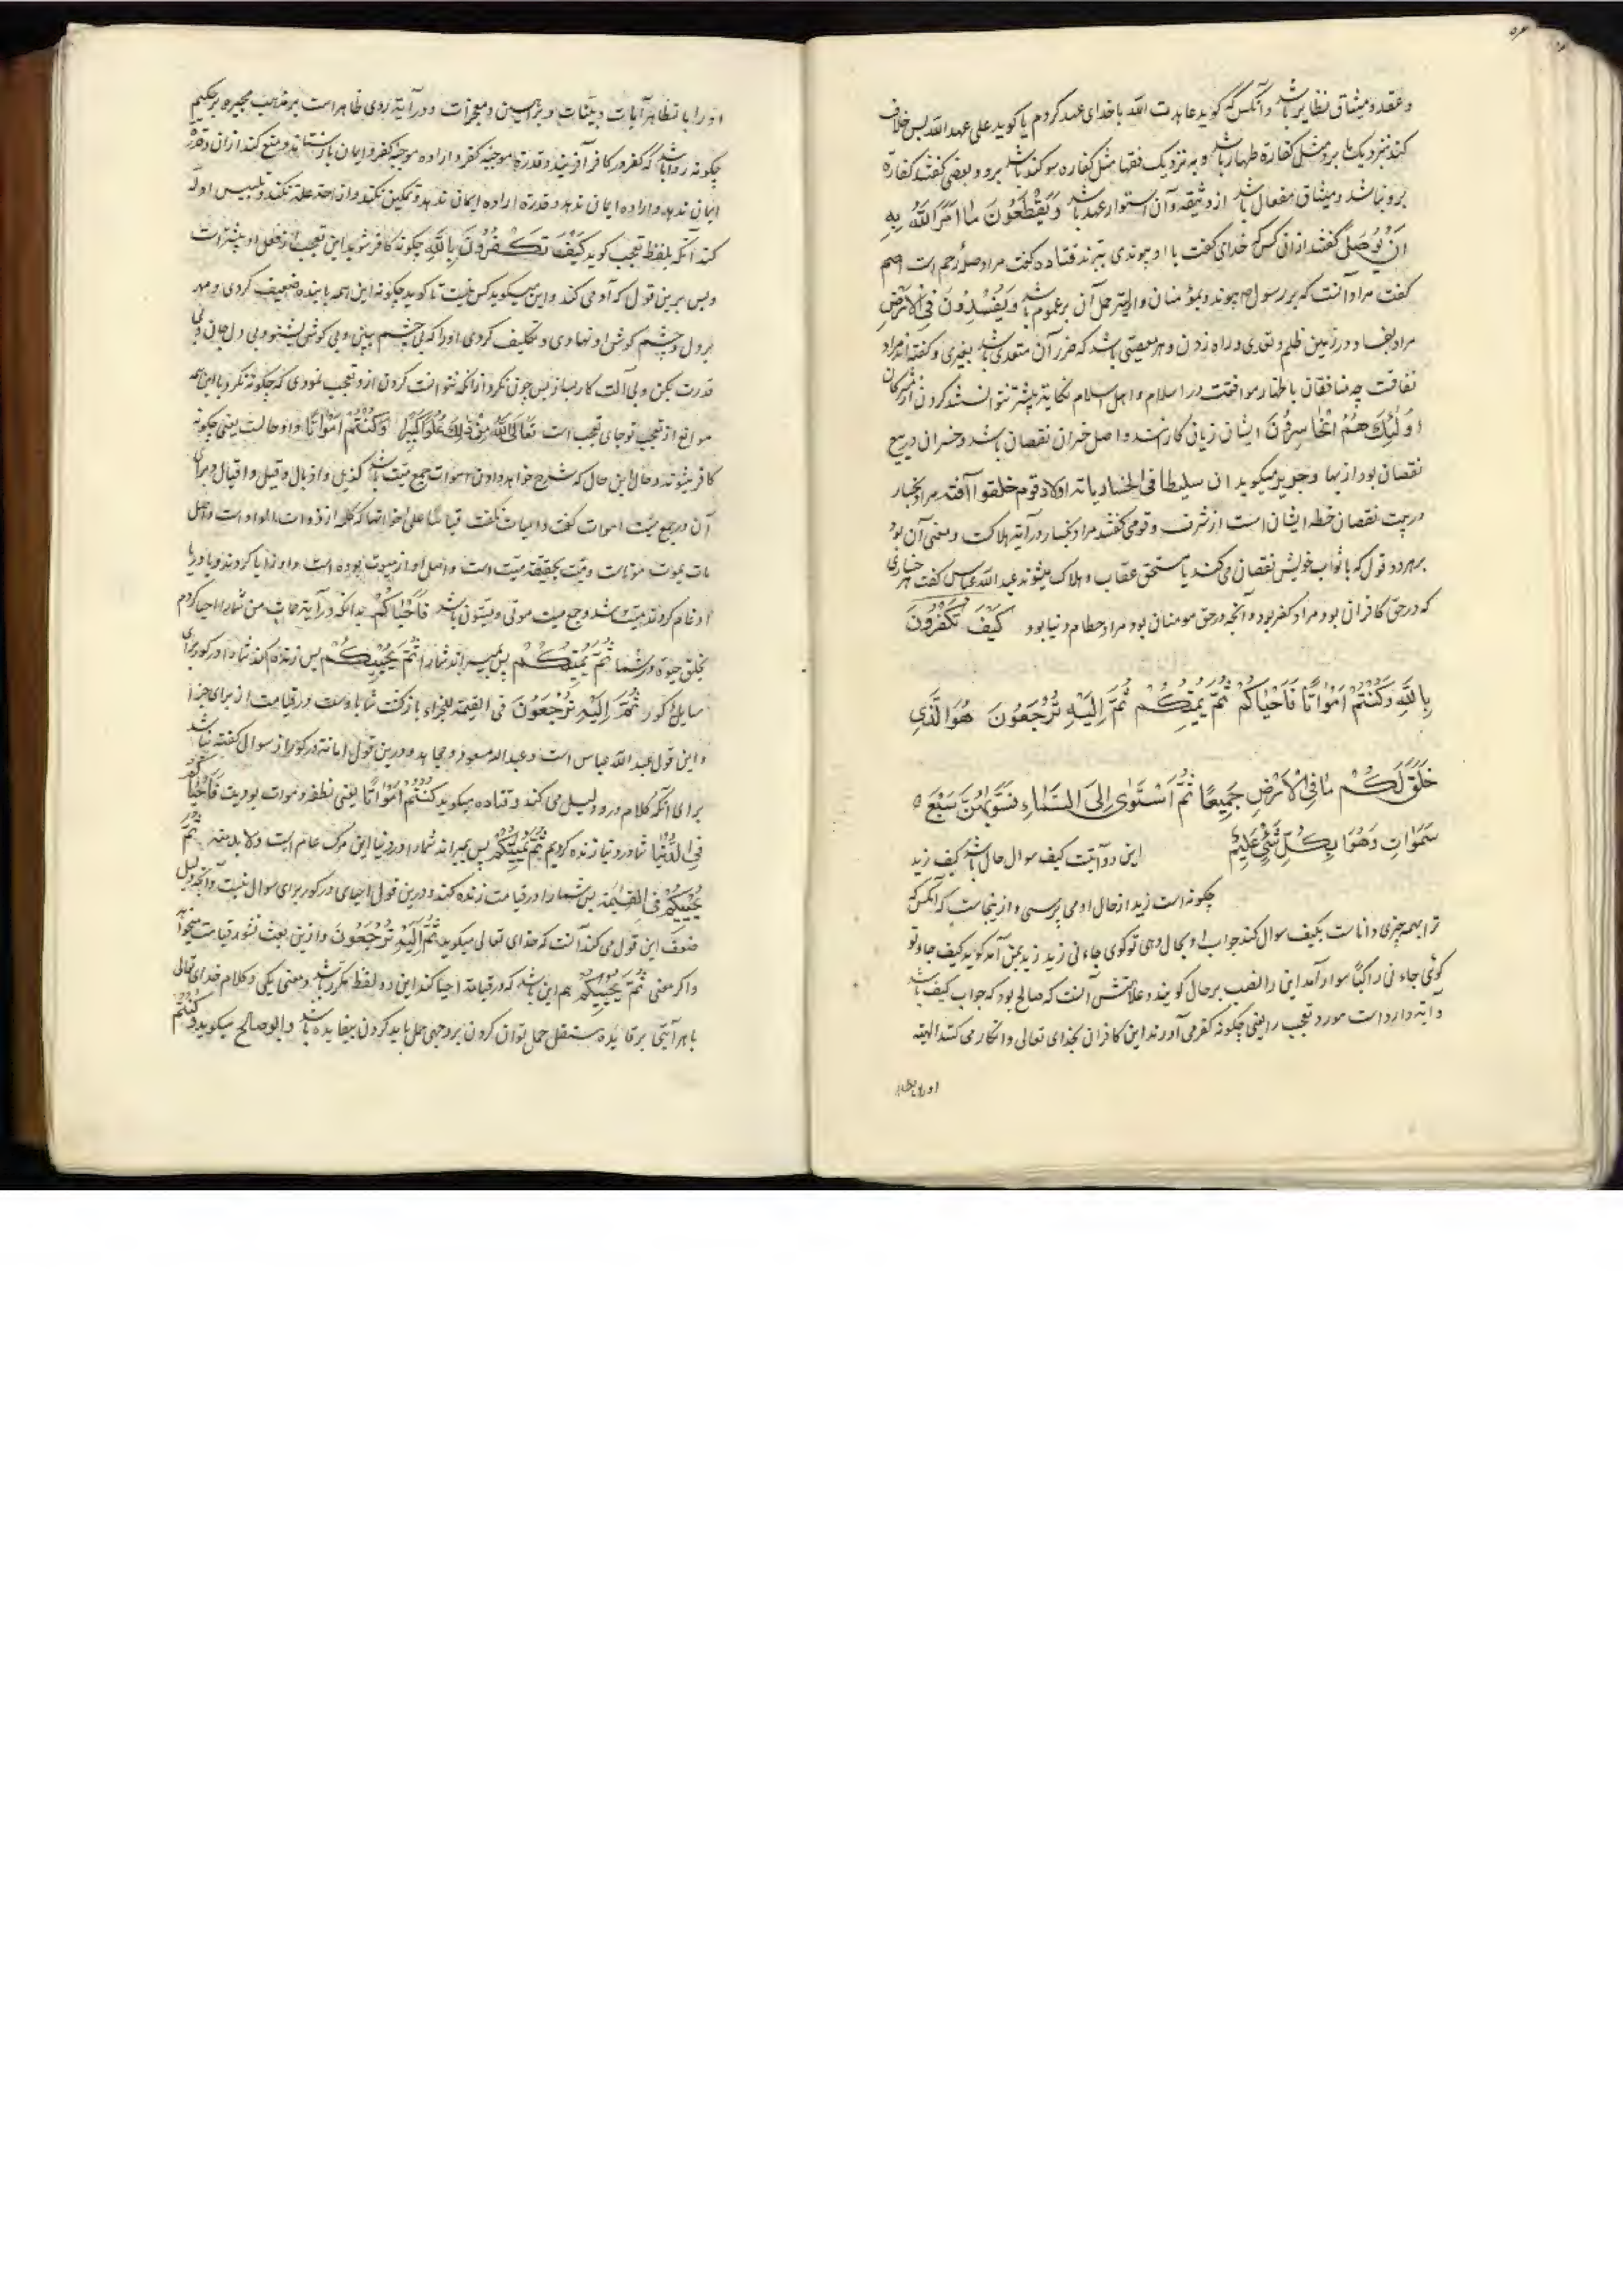 و عقد و میثاق نظایر باشد و آنکس که گوید عاهدت الله با خدای عهد کردم یا گوید علی عهد الله پس خلاف
کند بنزدیک ما برو مثل کفارة ظهار باشد و بنزدیک فقها مثل کفاره سوکند باشد برو و بعضی گفتند کفارة
برو نباشد و میثاق مفعال باشد از وثیقه و آن استوار عهد باشد وَيَقْطَعُونَ مَا أَمَرَ اللَّهُ بِهِ
أَنْ يُوصَلَ گفتند از آن کس که خدای گفت با او پیوندی ببرند قتاده گفت مراد صله رحم است اصم
گفت مراد آنست که برسول پیوندد بمؤمنان و اولیتر حمل آن بر عموم باشد وَيُفْسِدُونَ فِي الْأَرْضِ
مراد بفساد در زمین ظلم و تعدی و راه زدن و هر معصیتی باشد که ضرر آن متعدی باشد بغیری و گفته‌اند مراد
نفاقست چه منافقان باظهار موافقت در اسلام و اهل اسلام نکایة بیشتر توانستند کردن از مشرکان
أُولَئِكَ هُمُ الْخَاسِرُونَ ایشان زیان کارانند و اصل خسران نقصان باشد و خسران در بیع
نقصان بود از بها و جریر میکوید ان سلیطا فی الخسار یانه اولاد قوم خلقوا اقنه مراد بخسار
در بیت نقصان حظ ایشان است از شرف و قومی گفتند مراد بخسار در آیة هلاکست و معنی آن بود
بر هر دو قول که یا ثواب خویش نقصان می‌کنند یا مستحق عقاب و هلاک میشوند عبد الله عباس گفت هر خساری
که در حق کافران بود مراد کفر بود و آنچه در حق مومنان بود مراد حطام دنیا بود كَيْفَ تَكْفُرُونَ
بِاللَّهِ وَكُنْتُمْ أَمْوَاتًا فَأَحْيَاكُمْ ثُمَّ يُمِيتُكُمْ ثُمَّ إِلَيْهِ تُرْجَعُونَ هُوَ الَّذِي
خَلَقَ لَكُمْ مَا فِي الْأَرْضِ جَمِيعًا ثُمَّ اسْتَوَى إِلَى السَّمَاءِ فَسَوَّاهُنَّ سَبْعَ
سَمَوَاتٍ وَهُوَ بِكُلِّ شَيْءٍ عَلِيمٌ این دو آیتست کیف سوال حال باشد کیف زید
چگونه است زید از حال او می‌پرسی و از ینجاست که آنکس که
ترا بهمه چیزی داناست بکیف سوال کند جواب او بحال دهی تو کوی جاءنی زید زید بمن آمد گوید کیف جاء تو
کوئی جاءنی راکبًا سوار آمد این را نصب بر حال کویند و علامتش آنست که صالح بود که جواب کیف باشد
و آیة وارد است مورد تعجب را یعنی چگونه کفر می‌آورند این کافران بخدای تعالی و انکار می‌کنند الهیة
او را با تظاهر
او را با تظاهر آیات و بینات و براهین و معجزات و در آیة ردی ظاهر است بر مذهب مجبره بر حکیم
چگونه روا باشد که کفر در کافر آفریند و قدرة موجبه کفر و ارادة موجبه کفر و از ایمان باز ستاند و منع کند از آن و قدرة
ایمان ندهد و اراده ایمان ندهد و قدرة ارادة ایمان ندهد و تمکین نکند و ازاحة علة نکند و تلبیس ادلة
کند آنکه بلفظ تعجب گوید كَيْفَ تَكْفُرُونَ بِاللَّهِ چگونه کافر شوید این تعجب از فعل او بیشتر است
و پس برین قول که آدمی کند و این میگوید کس نیست تا گوید چگونه این همه با بنده ضعیف کردی و مهر
بر دل و چشم و گوش او نهادی و تکلیف کردی او را که بی چشم ببین و بی گوش بشنو و بی دل بدان و بی
قدرت بکن و بی آلت کار بساز پس چون نکرد از آنکه نتوانست کردن ازو تعجب نمودی که چگونه نکرد با این همه
موانع از تعجب تو جای تعجب است تَعَالَى اللَّهُ مِنْ ذَلِكَ عُلُوًّا كَبِيرًا وَكُنْتُمْ أَمْوَاتًا واو حالست یعنی چگونه
کافر میشوند و حال این حال که شرح خواهد دادن اموات جمع میت باشد کذیل و اذیال و قیل و اقیال و برای
آن در جمع میت اموات گفت و امیات نگفت قیاسًا علی اخواتها که کلمه از ذوات الواو است و اصل
مات یموت موتاست و میت بحقیقة میت است و اصل او از میوت بوده است واو را یا کردند و یا در یا
ادغام کردند میت شد و جمع میت موتی و میتون باشد فَأَحْيَاكُمْ
بخلق حیوة در شما ثُمَّ يُمِيتُكُمْ پس بمیراند شما را ثُمَّ يُحْيِيكُمْ پس زنده کند شما را در گور برای
مسایل گور ثُمَّ إِلَيْهِ تُرْجَعُونَ فی القیمة للجزاء بازگشت شما با اوست در قیامت از برای جزا
و این قول عبد الله عباس است و عبد الله مسعود و مجاهد و درین قول اماتة در گور از سوال گفته نباشد
برای آنکه کلام درو دلیل می‌کند و قتاده میکوید كُنْتُمْ أَمْوَاتًا یعنی نطفه و موات بودیت فَأَحْيَاكُمْ
فِي الدُّنْيَا شما در دنیا زنده کردیم ثُمَّ يُمِيتُكُمْ پس بمیراند شما را در دنیا این مرگ عام است و لا بد منه ثُمَّ
يُحْيِيكُمْ فِي الْقِيمَةِ پس شما را در قیامت زنده کند و درین قول احیای در گور برای سوال نیست و آنچه دلیل
ضعف این قول می‌کند آنست که خدای تعالی میگوید ثُمَّ إِلَيْهِ تُرْجَعُونَ و ازین بعث نشور قیامت میخواهد
و اگر معنی ثُمَّ يُحْيِيكُمْ هم این باشد که در قیامة احیا کند این دو لفظ مکرر باشد و معنی یکی و کلام خدای تعالی
با هر آیتی بر فایده مستقل حمل توان کردن بر وجهی حمل باید کردن بیفایده باشد و ابو صالح میگوید وَكُنْتُمْ